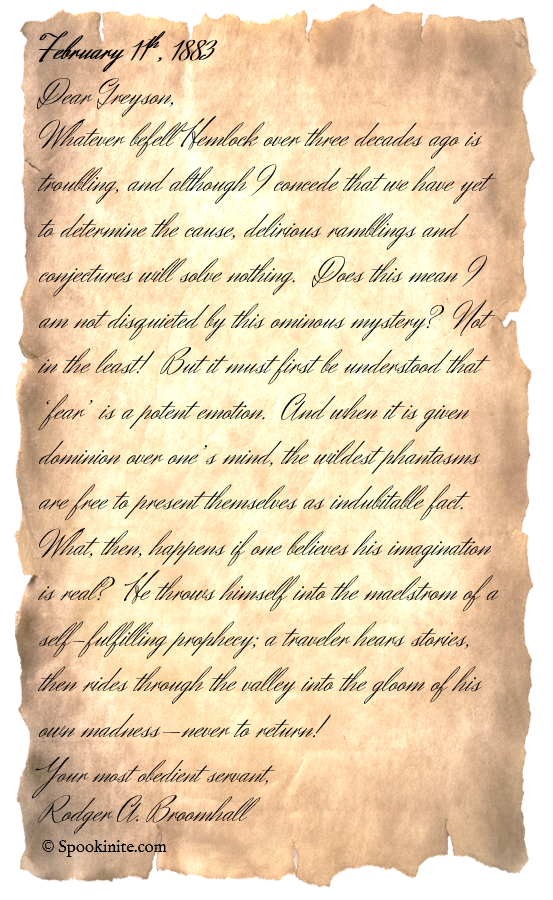 February 11th, 1883
Dear Greyson,
Whatever befell Hemlock over three decades ago is
troubling, and although I concede that we have yet
to determine the cause, delirious ramblings and
conjectures will solve nothing.  Does this mean I
am not disquieted by this ominous mystery?  Not
in the least!  But it must first be understood that
'fear' is a potent emotion.  And when it is given
dominion over one's mind, the wildest phantasms
are free to present themselves as indubitable fact.
What, then, happens if one believes his imagination
is real?  He throws himself into the maelstrom of a
self-fulfilling prophecy; a traveler hears stories,
then rides through the valley into the gloom of his
own madness—never to return!
Your most obedient servant,
Rodger A. Broomhall
© Spookinite.com